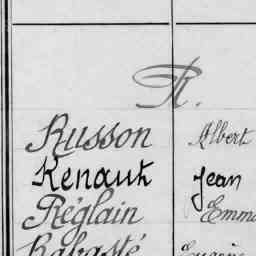 R.
Russon Albert
Renault Jean
Réglain Emma
Rabasté Eugène